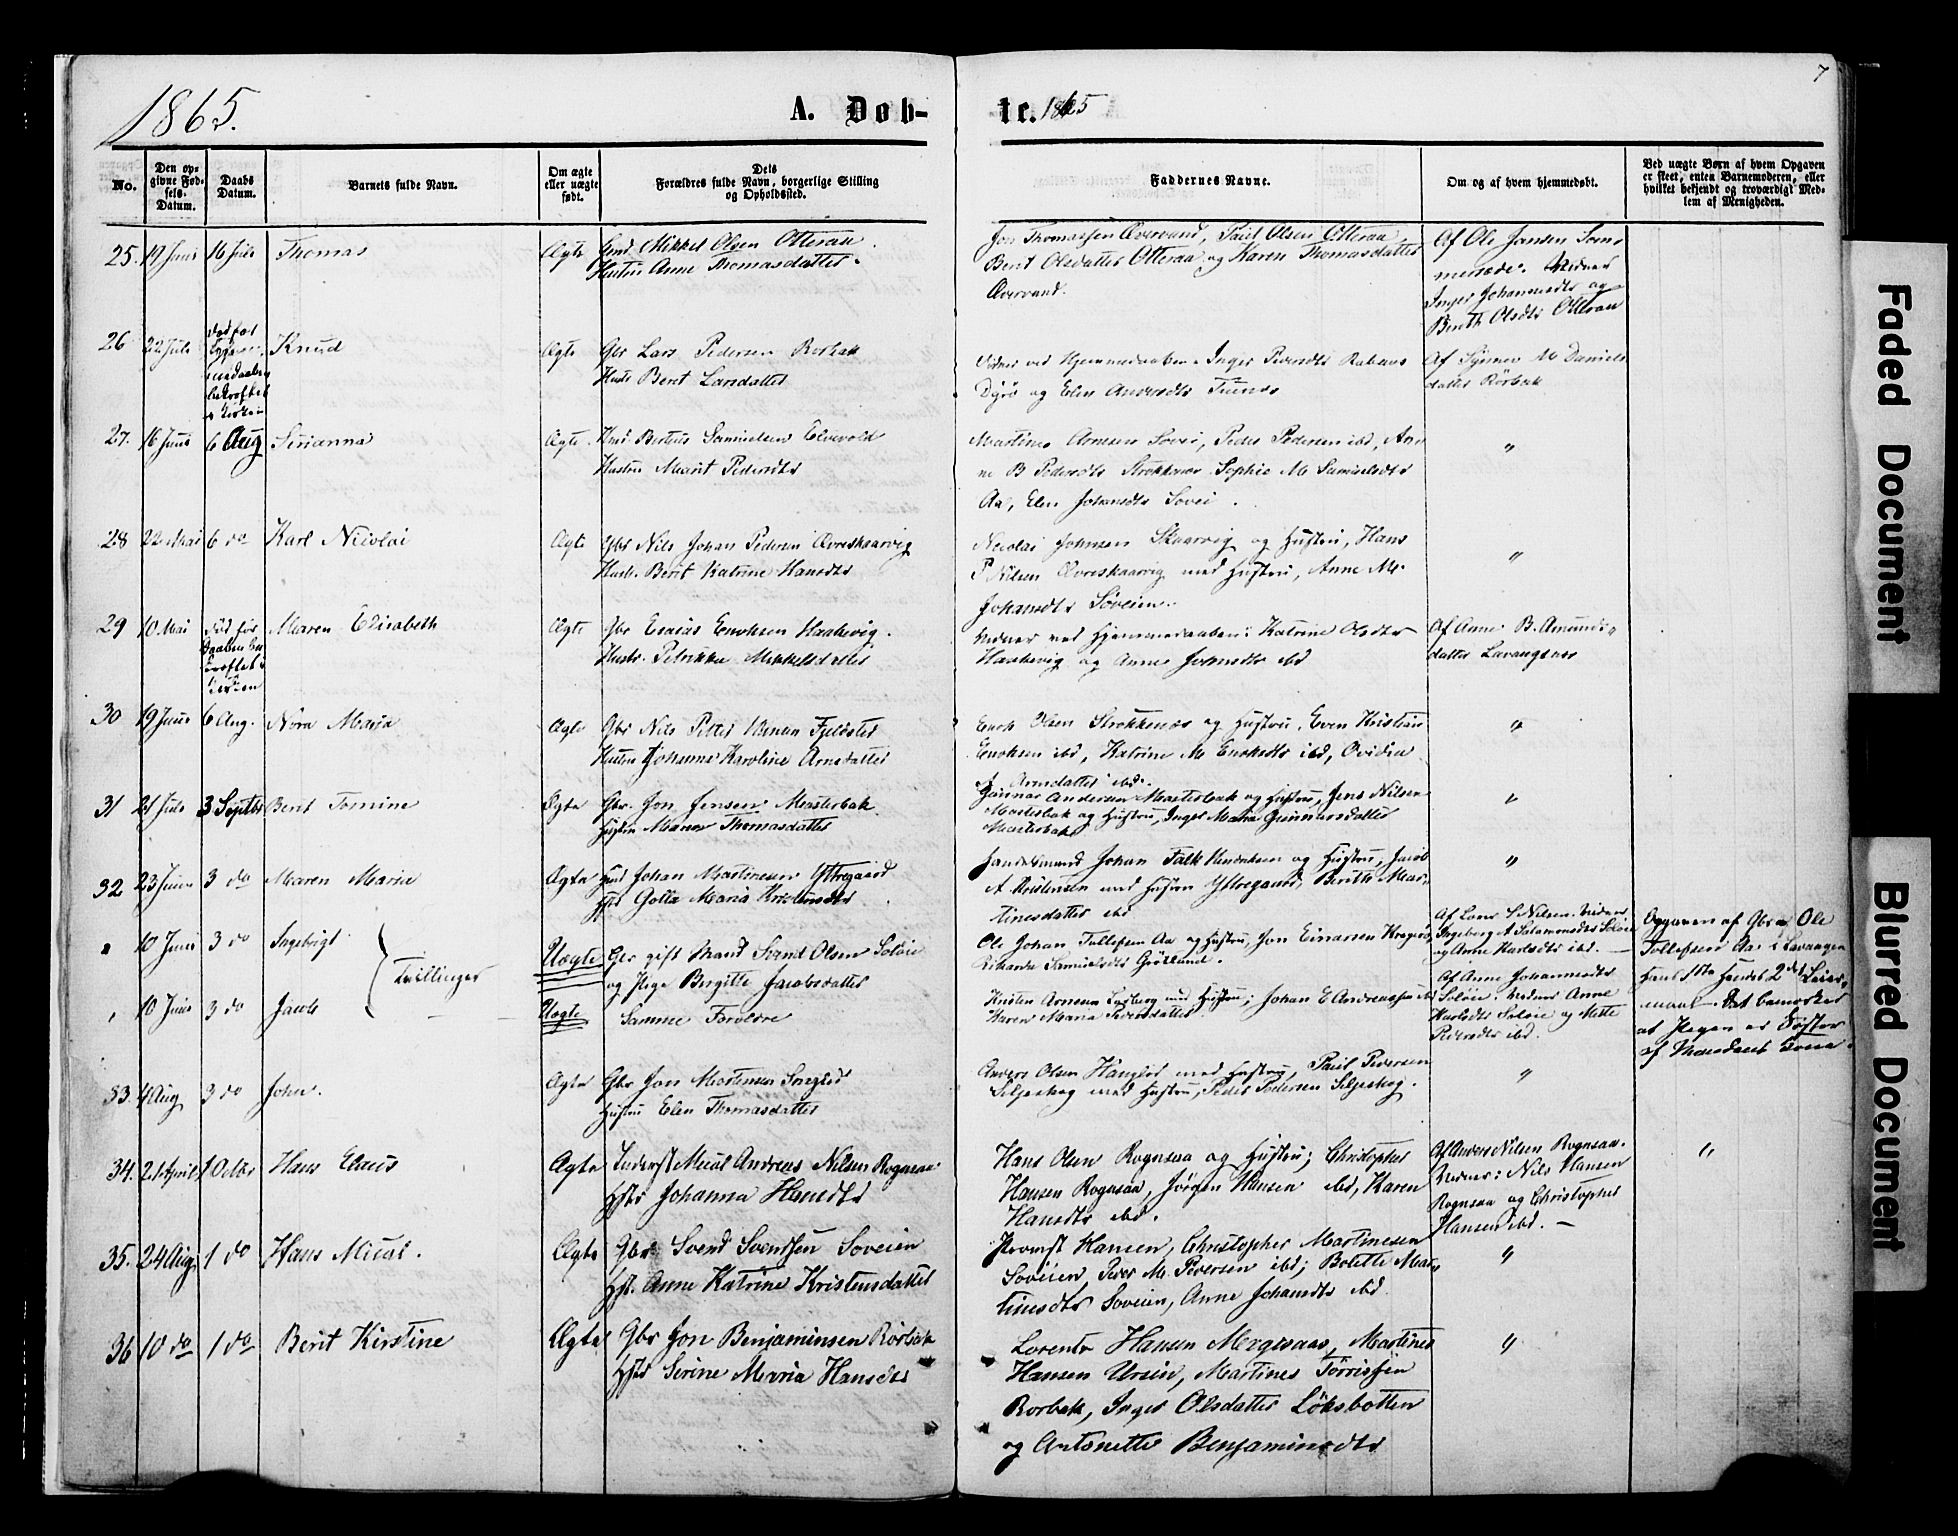 1865.
A. Døb-
te. 1865
7
No.
Den op-
givne Fød-
sels-
Datum.
Daabs
Datum.
Barnets fulde Navn.
Om ægte
eller uægte
født.
Dets
Forældres fulde Navn, borgerlige Stilling
og Opholdssted.
Faddernes Navne.
Om og af hvem hjemmedøbt.
Ved uægte Børn af hvem Opgaven
er skeet, enten Barnemoderen, eller
hvilket bekjendt og troværdigt Med-
lem af Menigheden.
25. 19 Juni 16 Juli Thomas Ægte Gmd Mikkel Olsen Otteraa.
Hustru Anne Thomasdatter.
Jon Thomassen Øvervand, Paul Olsen Otteraa,
Berit Olsdatter Otteraa og Karen Thomasdatter
Øvervand.
Af Ole Jansen Som-
mersæde. Vidner
Inger Johannesdtr og
Berith Olsdtr Otteraa
26 22 Juli død før
bekræftet
Knud Ægte Gbr Lars Pedersen Rørbak
Hustr Berit Larsdatter
Vidner ved Hjemmedaaben. Inger Pedersdtr
Dyrø og Elen Andersdtr
Af Synner M Daniels
datter Rörbak
27. 16 Juni 6 Aug Sirianna Ægte. Hmd. Bertius Samuelsen Elvevold
Hustru Marit Pedersdtr
Martines Arnesen Sovei, Peder Pedersen ibd, An-
ne B Pedersdtr Strokkenæs Sophie M Samuelsdtr
Aa, Elen Johansdtr Sovei.
"
28 22 Mai 6 do Karl Nicolai Ægte Gbr Nils Johan Pedersen Øvreskaarvig
Hustr. Berit Katrine Hansdtr
Nicolai Johnsen Skaarvig og Hustru, Hans
P Nilsen Øvreskaarvig med Hustru, Anne M.
Johansdtr Söveien.
"
29 10 Mai død før
Daaben be-
kræftet i
Kirken
Maren Elisabeth Ægte Gbr Esaias Enoksen Haakevig.
Hustr. Petrikka Mikkelsdatter
Vidner ved Hjemmedaaben: Katrine Olsdtr
Haakevig og Anne Johnsdtr ibd
Af Anne B. Amunds-
datter Lavangsnæs
30 19 Juni 6 Aug. Nora Maria Ægte Gbr Nils Petter Fjeldsted
Hustru Johanne Karoline Arnsdatter
Enok Olsen Strokkenæs og Hustru. Even Kristian
Enoksen ibd, Katrine M Enoksdtr ibd, Ovidia
A Arnsdatter ibd.
"
31 21 Juli 3 Septbr Berit Tomine Ægte Gbr. Jon Jensen Mosterbak
Hustru Maren Thomasdatter
Gunnar Andersen Mosterbak og Hustru, Jens Nilsen
Mosterbak og Hustru, Inger Maria Gunnarsdatter
Mosterbak
"
32 23 Juni 3 do Maren Maria Ægte Gmd Johan Martinesen Ytregaard
Hstr Golla Maria Kristensdtr
Handelsmand Johan Falk Hendriksen og Hustru, Jacob
A Kristensen med Hustru Ytregaard, Berith Mar-
tinesdatter ibd
"
" 10 Juni 3 do Ingebrigt
Tvillinger
Uægte Gbr gift Mand Svend Olsen Soløie
og Pige Birgitte Jacobsdatter
Ole Johan Tollefsen Aa og Hustru, Jon Einarsen
Rikarda Samuelsdtr Grøtland.
Af Lars S Nilsen. Vidner
Ingeborg A Salamonsdtr Soløie
og Anne Karlsdtr ibd. —
Opgaven af Gbr Ole
Tollefsen Aa i Lavangen
Hans 1ste Hendes 2det Leier-
maal. Det bemærkes
at Pigen er Søster
af Mandens Kone.
" 10 Juni 3 do Jacob — Uægte Samme Forældre
Kristen Arnesen med Hustru; Johan E Andreassen ibd
Karen Maria Pedersdatter
Af Anne Johannesdtr
Soløie. Vidner Anne
Karlsdtr Soløie og Mette
Pedersdtr ibd.
33. 4 Aug 3 do John. Ægte Gbr Jon Mortensen
Hustru Elen Thomasdatter
Anders Olsen med Hustru, Paul Pedersen
Seljeskog med Hustru, Peder Pedersen Seljeskog.
"
34. 21 April 1 Octbr Hans Claus Ægte Inderst Mical Andreas Nilsen Rognsaa
Hstr Johanna Hansdtr
Hans Olsen Rognsaa og Hustru; Christopher
Hansen Rognsaa, Jörgen Hansen ibd, Karen
Hansdtr ibd.
Af Anders Nilsen Rognsaa.
Vidner: Nils Hansen
Rognsaa og Christopher
Hansen ibd. —
"
35. 24 Aug. 1 do Hans Mical. Ægte Gbr Svend Svendsen Soveien
Hst. Anne Katrine Kristensdatter
Hansen, Christopher Martinesen
Soveien, Peder M. Pedersen ibd; Bolette Mar-
tinesdtr Soveien, Anne Johansdtr ibd.
"
36 10 do 1 do Berit Kirstine Ægte Gbr Jon Benjaminsen Rörbak
Hstr Serine Maria Hansdtr
Lorents Hansen Mergesaas, Martines
Hansen Ursin, Martines Törrissen
Rorbak, Inger Olsdatter Löksbotten
og Antonette Benjaminsdtr
"
Faded Document
Blurred Document